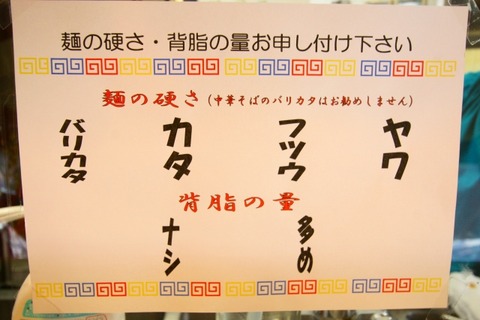 麺の硬さ・背脂の量お申し付け下さい
麺の硬さ(中華そばのバリカタはお勧めしません)
バリカタ
カタ
フツウ
ヤワ
背脂の量
ナシ
多め